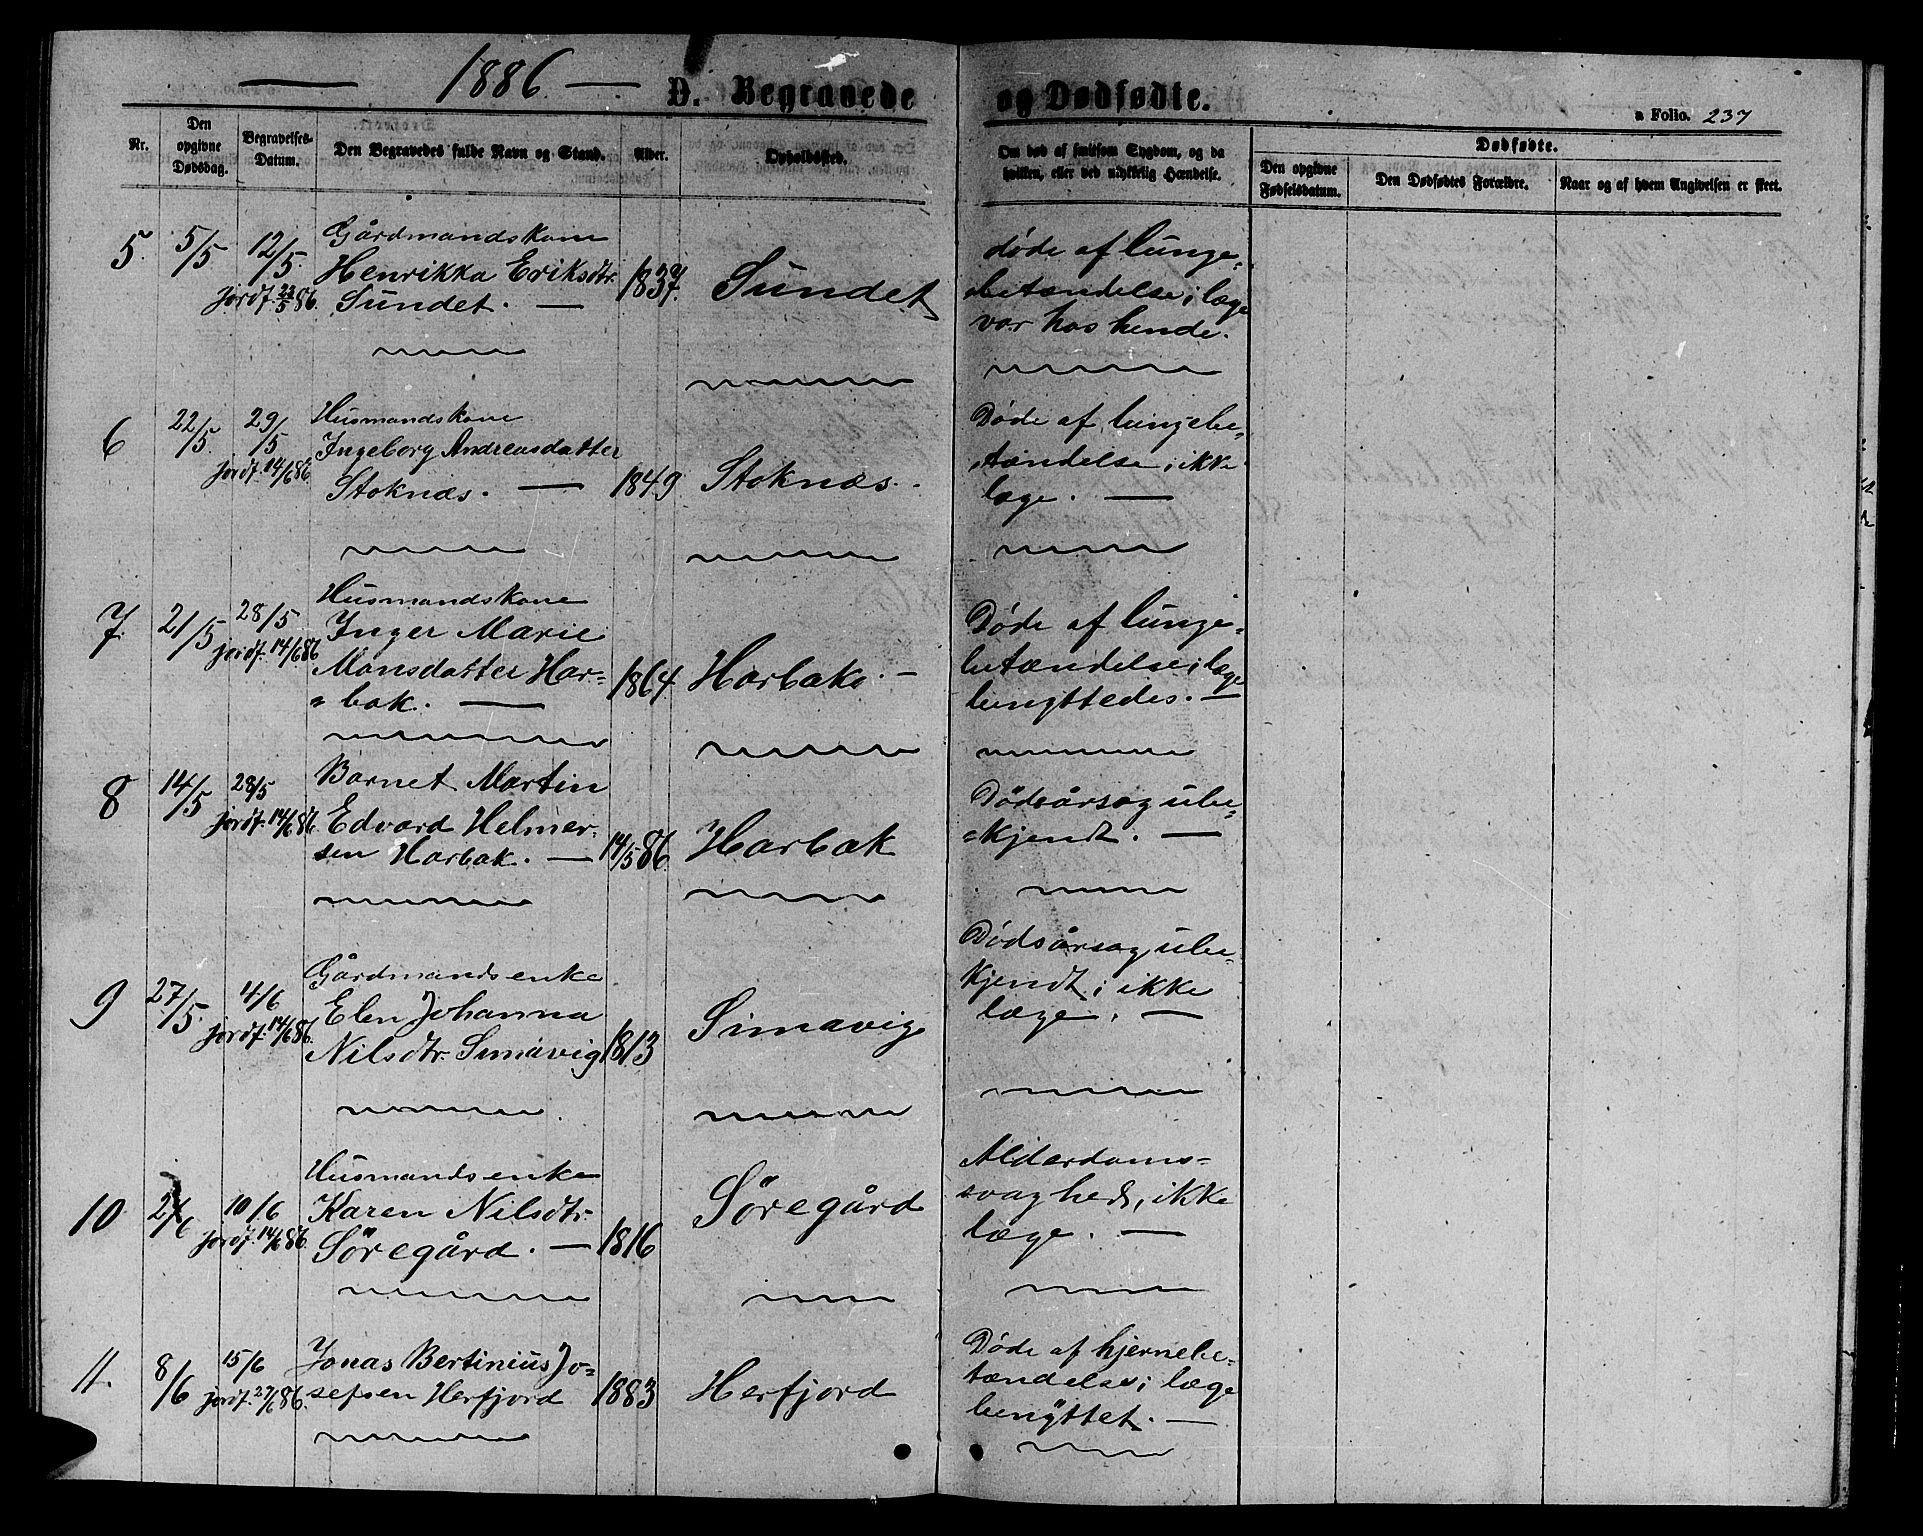 1886.
D. Begravede og Dødfødte.
a Folio. 237
Nr.
Den opgivne Dødsdag.
Begravelses-Datum.
Den Begravedes fulde Navn og Stand.
Alder.
Opholdssted.
Om død af smitsom Sygdom, og da hvilken, eller ved ulykkelig Hændelse.
Dødfødte.
Den opgivne Fødselsdatum.
Den Dødfødtes Forældre.
Naar og af hvem Angivelsen er skeet.
5. 5/5 12/5. jordf. 23/5 86.
Gårdmandskone
Henrikka Eriksdtr.
Sundet. —
1837.
Sundet
døde af lunge-
betændelse; læge
var hos hende.
6 22/5. 29/5 jordf. 14/6 86.
Husmandskone
Ingeborg Andreasdatter
Stoknæs. —
1849
Stoknæs.
Døde af lungebe-
tændelse; ikke
læge. —
7. 21/5 28/5 jordf. 14/6 86
Husmandskone
Inger Marie
Monsdatter Har-
bak. —
1864.
Harbak. —
Døde af lunge-
betændelse; læge
benyttedes. —
8 14/5 28/5 jordf. 14/6 86.
Barnet Martin
Edvard Helmer-
sen Harbak. —
14/5 86.
Harbak
Dödsårsag ube-
kjendt. —
9 27/5 4/6 jordf. 14/6 86.
Gårdmandsenke
Elen Johanna
Nilsdtr. Simavig
1813
Simavig
Dödsårsag ube-
kjendt; ikke
læge. —
10 2/6 10/6 jordf. 14/6 86.
Husmandsenke
Karen Nilsdtr.
Söregård. —
1816
Söregård
Alderdoms-
svaghed, ikke
læge. —
11. 8/6 15/6 jordf. 27/6 86.
Jonas Bertinius Jo-
sefsen Herfjord
1883
Herfjord
Døde af hjernebe-
tændelse; læge
benÿttet. —